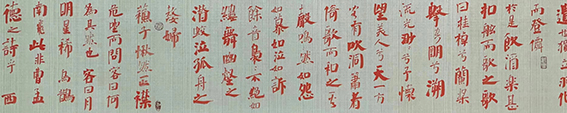 遺世獨立羽化
而登僊
於是飲酒樂甚
扣舷而歌之歌
曰桂棹兮蘭槳
擊空明兮溯
流光渺兮予懷
望美人兮天一方
客有吹洞簫者
倚歌而和之其
聲嗚嗚然如怨
如慕如泣如訴
餘音裊裊不絕如
縷舞幽壑之
潛蛟泣孤舟之
嫠婦
蘇子愀然正襟
危坐而問客曰何
為其然也客曰月
明星稀烏鵲
南飛此非曹孟
德之詩乎西